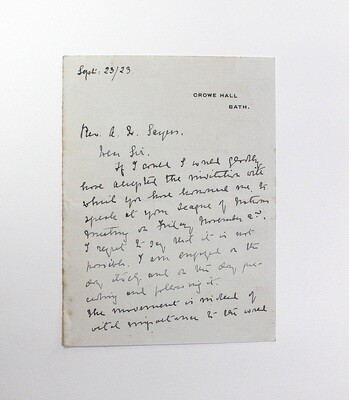 Sept. 23/23
CROWE HALL
BATH.
Rev. A. G. Sayers.
Dear Sir.
If I could I would gladly
have accepted the invitation with
which you have honoured me to
speak at your League of Nations
meeting on Friday November 2nd.
I regret to say that it is not
possible. I am engaged on the
day itself and on the day pre-
ceding and following it.
The movement is indeed of
vital importance to the world